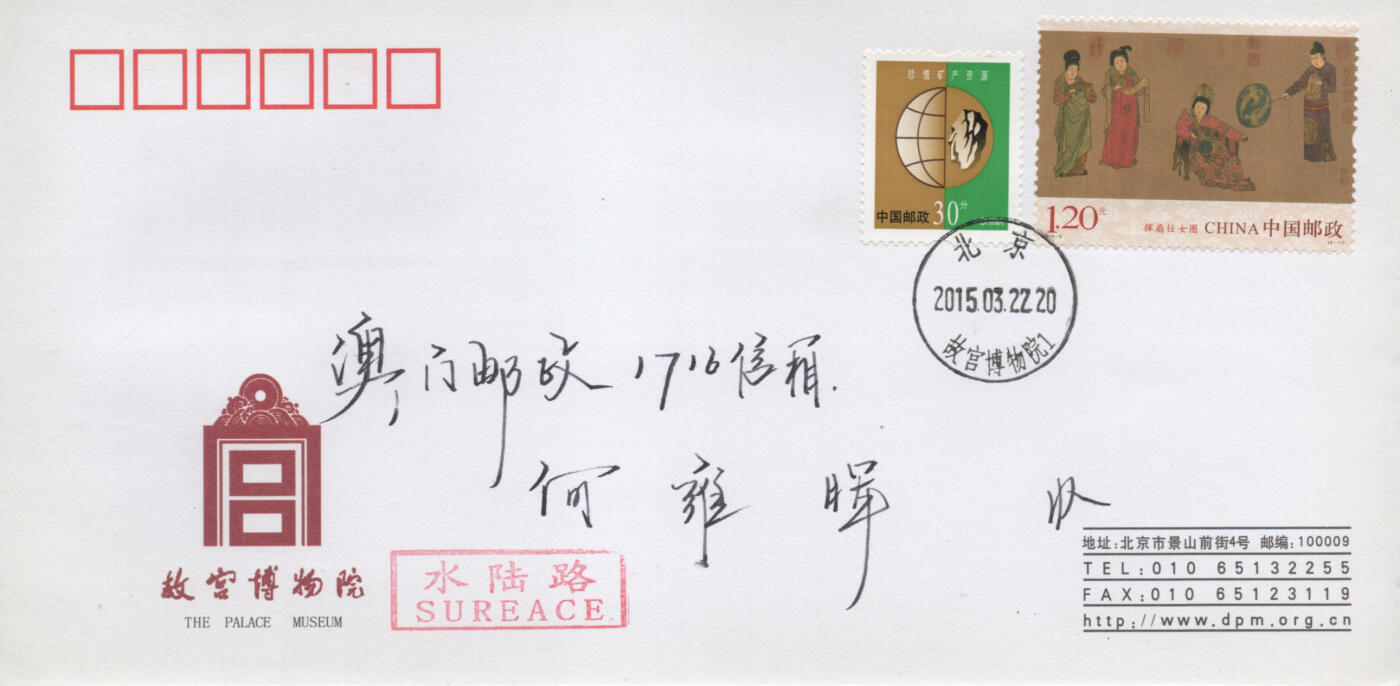 珍惜矿产资源
中国邮政 30分
1.20元
挥扇仕女图 CHINA 中国邮政
北京
2015.03.22.20
故宫博物院1
澳门邮政1716信箱.
何雍晖 收
故宫博物院
THE PALACE MUSEUM
水陆路
SUREACE
地址:北京市景山前街4号 邮编:100009
TEL:010 65132255
FAX:010 65123119
http://www.dpm.org.cn